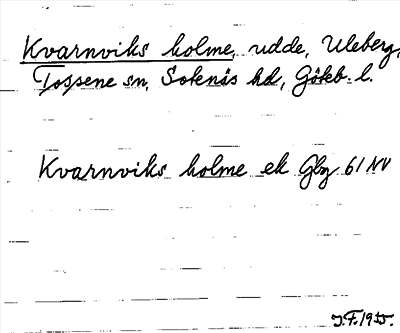 Kvarnviks holme, udde, Uleberg,
Tossene sn, Sotenäs hd, Göteb. l.
Kvarnviks holme ek Gbg 61 NV
J.F. 1955.